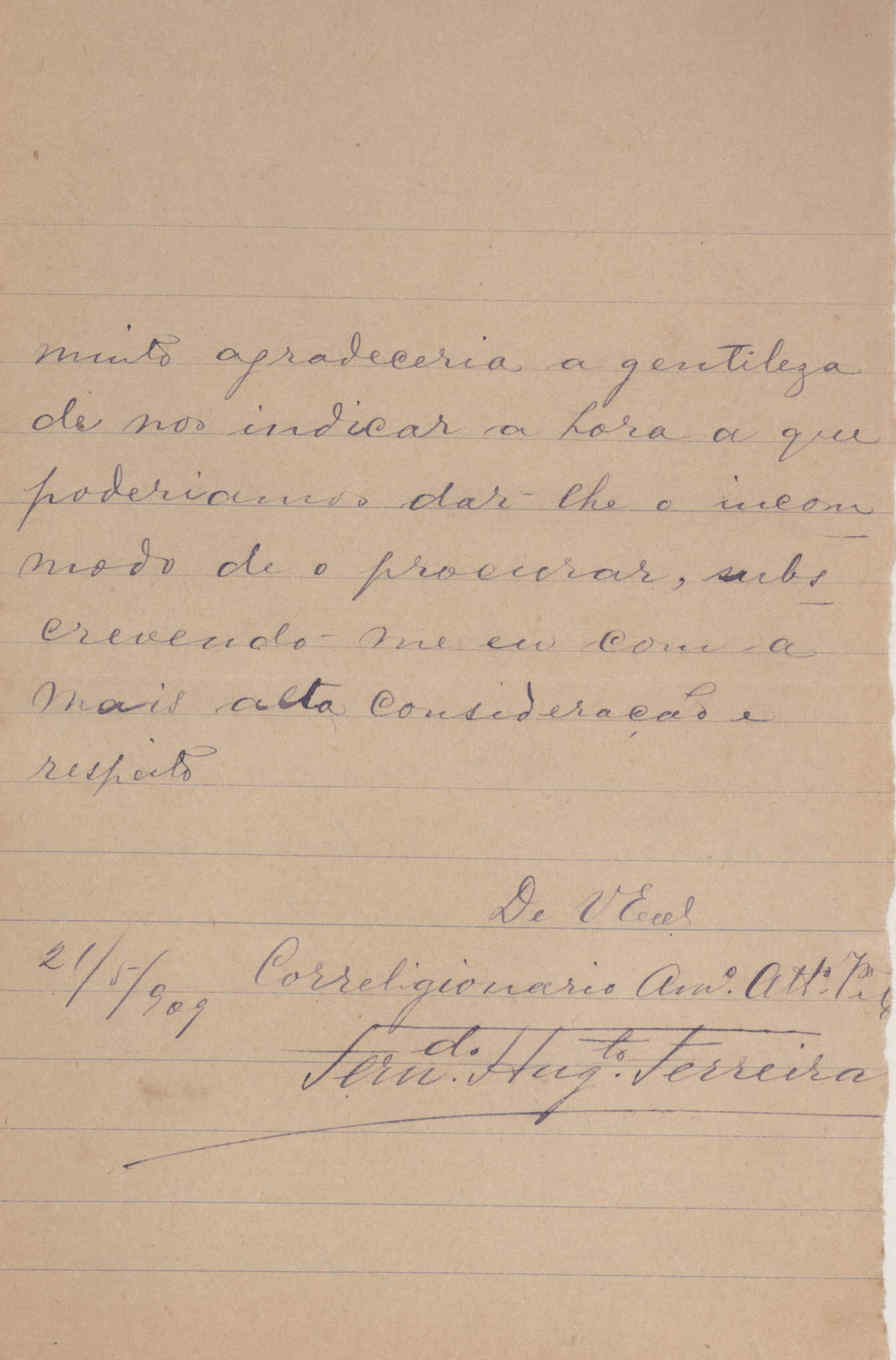 muito agradeceria a gentileza
de nos indicar a hora a que
poderiamos dar-lhe o incom
modo de o procurar, subs
crevendo-me eu com a
mais alta consideração e
respeito
De VExcª
21/5/909 Correligionario Amº. Attº.
Fern.do Augto. Ferreira